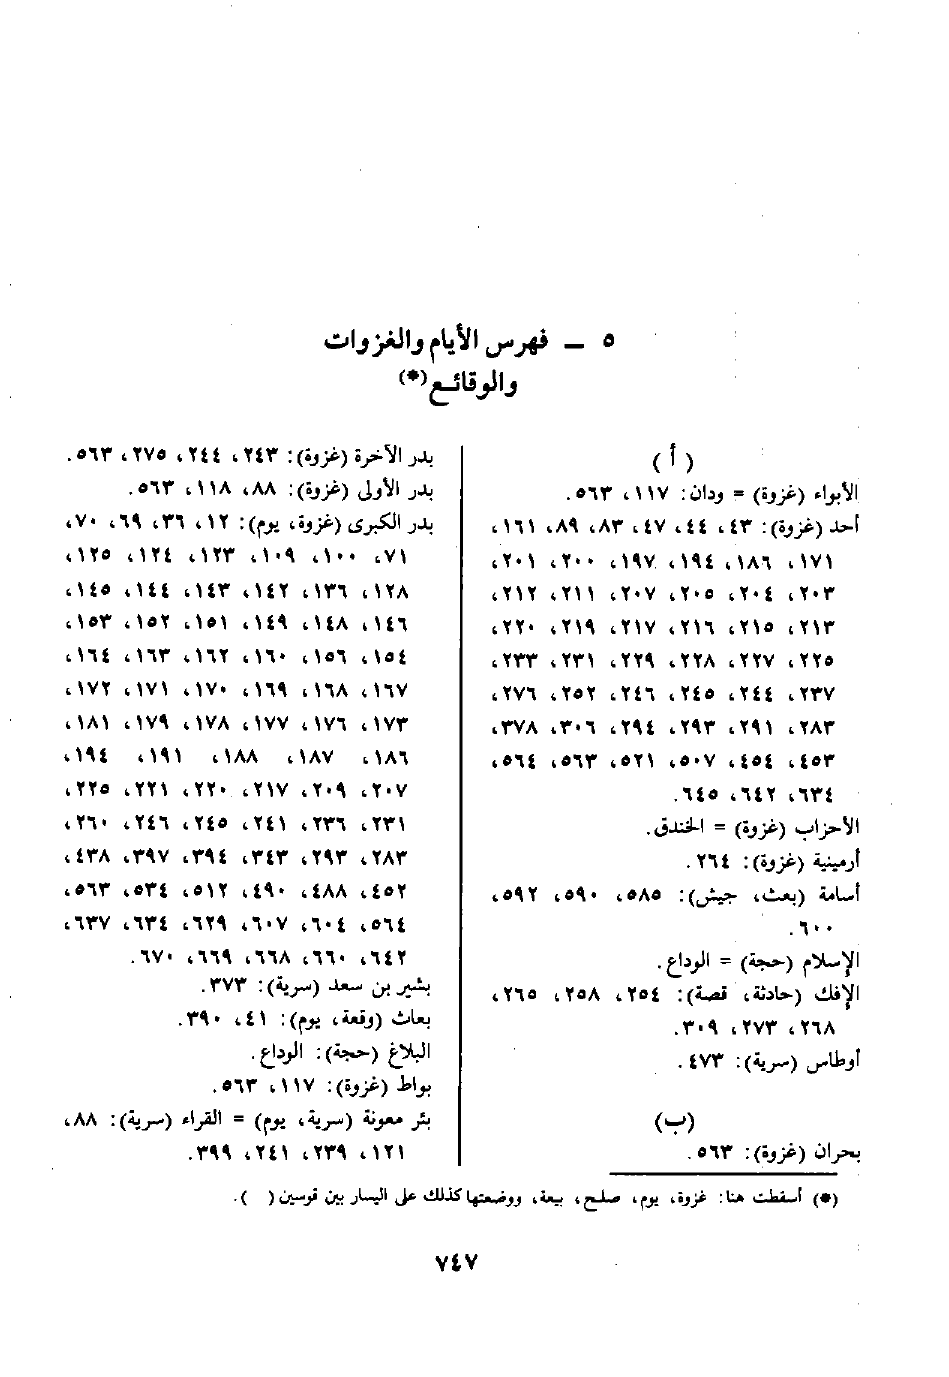 ٥ ــ فهرس الأيام والغزوات
والوقائع(*)
( أ )
الأبواء (غزوة) = ودان: ١١٧، ٥٦٣.
أحد (غزوة): ٤٣، ٤٤، ٤٧، ٨٣، ٨٩، ١٦١،
١٧١، ١٨٦، ١٩٤، ١٩٧، ٢٠٠، ٢٠١،
٢٠٣، ٢٠٤، ٢٠٥، ٢٠٧، ٢١١، ٢١٢،
٢١٣، ٢١٥، ٢١٦، ٢١٧، ٢١٩، ٢٢٠،
٢٢٥، ٢٢٧، ٢٢٨، ٢٢٩، ٢٣١، ٢٣٣،
٢٣٧، ٢٤٤، ٢٤٥، ٢٤٦، ٢٥٢، ٢٧٦،
٢٨٣، ٢٩١، ٢٩٣، ٢٩٤، ٣٠٦، ٣٧٨،
٤٥٣، ٤٥٤، ٥٠٧، ٥٢١، ٥٦٣، ٥٦٤،
٦٣٤، ٦٤٢، ٦٤٥.
الأحزاب (غزوة) = الخندق.
أرمينية (غزوة): ٢٦٤.
أسامة (بعث، جيش): ٥٨٥، ٥٩٠، ٥٩٢،
٦٠٠.
الإسلام (حجة) = الوداع.
الإفك (حادثة، قصة): ٢٥٤، ٢٥٨، ٢٦٥،
٢٦٨، ٢٧٣، ٣٠٩.
أوطاس (سرية): ٤٧٣.
(ب)
بحران (غزوة): ٥٦٣.
بدر الآخرة (غزوة): ٢٤٣، ٢٤٤، ٢٧٥، ٥٦٣.
بدر الأولى (غزوة): ٨٨، ١١٨، ٥٦٣.
بدر الكبرى (غزوة، يوم): ١٢، ٣٦، ٦٩، ٧٠،
٧١، ١٠٠، ١٠٩، ١٢٣، ١٢٤، ١٢٥،
١٢٨، ١٣٦، ١٤٢، ١٤٣، ١٤٤، ١٤٥،
١٤٦، ١٤٨، ١٤٩، ١٥١، ١٥٢، ١٥٣،
١٥٤، ١٥٦، ١٦٠، ١٦٢، ١٦٣، ١٦٤،
١٦٧، ١٦٨، ١٦٩، ١٧٠، ١٧١، ١٧٢،
١٧٣، ١٧٦، ١٧٧، ١٧٨، ١٧٩، ١٨١،
١٨٦، ١٨٧، ١٨٨، ١٩١، ١٩٤،
٢٠٧، ٢٠٩، ٢١٧، ٢٢٠، ٢٢١، ٢٢٥،
٢٣١، ٢٣٦، ٢٤١، ٢٤٥، ٢٤٦، ٢٦٠،
٢٨٣، ٢٩٣، ٣٤٣، ٣٩٤، ٣٩٧، ٤٣٨،
٤٥٢، ٤٨٨، ٤٩٠، ٥١٢، ٥٣٤، ٥٦٣،
٥٦٤، ٦٠٤، ٦٠٧، ٦٢٩، ٦٣٤، ٦٣٧،
٦٤٢، ٦٦٠، ٦٦٨، ٦٦٩، ٦٧٠.
بشير بن سعد (سرية): ٣٧٣.
بعاث (وقعة، يوم): ٤١، ٣٩٠.
البلاغ (حجة): الوداع.
بواط (غزوة): ١١٧، ٥٦٣.
بئر معونة (سرية، يوم) = القراء (سرية): ٨٨،
١٢١، ٢٣٩، ٢٤١، ٣٩٩.
(*) أسقطت هنا: غزوة، يوم، صلح، بيعة، ووضعتها كذلك على اليسار بين قوسين ( ).
٧٤٧